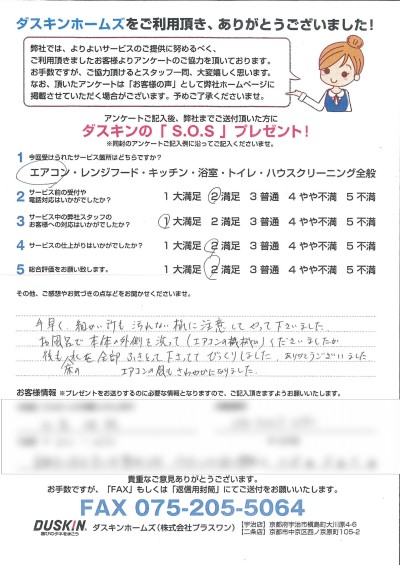 ダスキンホームズをご利用頂き、ありがとうございました!
弊社では、よりよいサービスのご提供に努めるべく、
ご利用頂きましたお客様よりアンケートのご協力を頂いております。
お手数ですが、ご協力頂けるとスタッフ一同、大変嬉しく思います。
なお、頂いたアンケートは「お客様の声」として弊社ホームページに
掲載させていただく場合がございます。予めご了承くださいませ。
アンケートご記入後、弊社までご送付頂いた方に
ダスキンの「S.O.S」プレゼント!
※同封のアンケートご記入例に沿ってご記入くださいませ。
1 今回受けられたサービス箇所はどちらですか?
エアコン・レンジフード・キッチン・浴室・トイレ・ハウスクリーニング全般
2 サービス前の受付や
電話対応はいかがでしたか? 1 大満足 2 満足 3 普通 4 やや不満 5 不満
3 サービス中の弊社スタッフの
お客様への対応はいかがでしたか? 1 大満足 2 満足 3 普通 4 やや不満 5 不満
4 サービスの仕上がりはいかがでしたか? 1 大満足 2 満足 3 普通 4 やや不満 5 不満
5 総合評価をお願い致します。 1 大満足 2 満足 3 普通 4 やや不満 5 不満
その他、ご感想やお気づきの点などをお聞かせくださいませ。
手早く、細かい所も汚れない様に注意してやって下さいました。
お風呂で本体の外側を洗って(エアコンの機械や)くださいましたが
後も水を全部ふきとって下さってびっくりしました。ありがとうございました
家の エアコンの風もさわやかになりました。
お客様情報 ※プレゼントをお送りするのに必要な情報となりますので、ご記入頂きますようお願いいたします。
貴重なご意見ありがとうございます。
お手数ですが、「FAX」もしくは「返信用封筒」にてご送付をお願いいたします。
FAX 075-205-5064
DUSKIN 喜びのタネをまこう ダスキンホームズ(株式会社プラスワン) 【宇治店】京都府宇治市槇島町大川原4-6
【二条店】京都市中京区西ノ京原町105-2